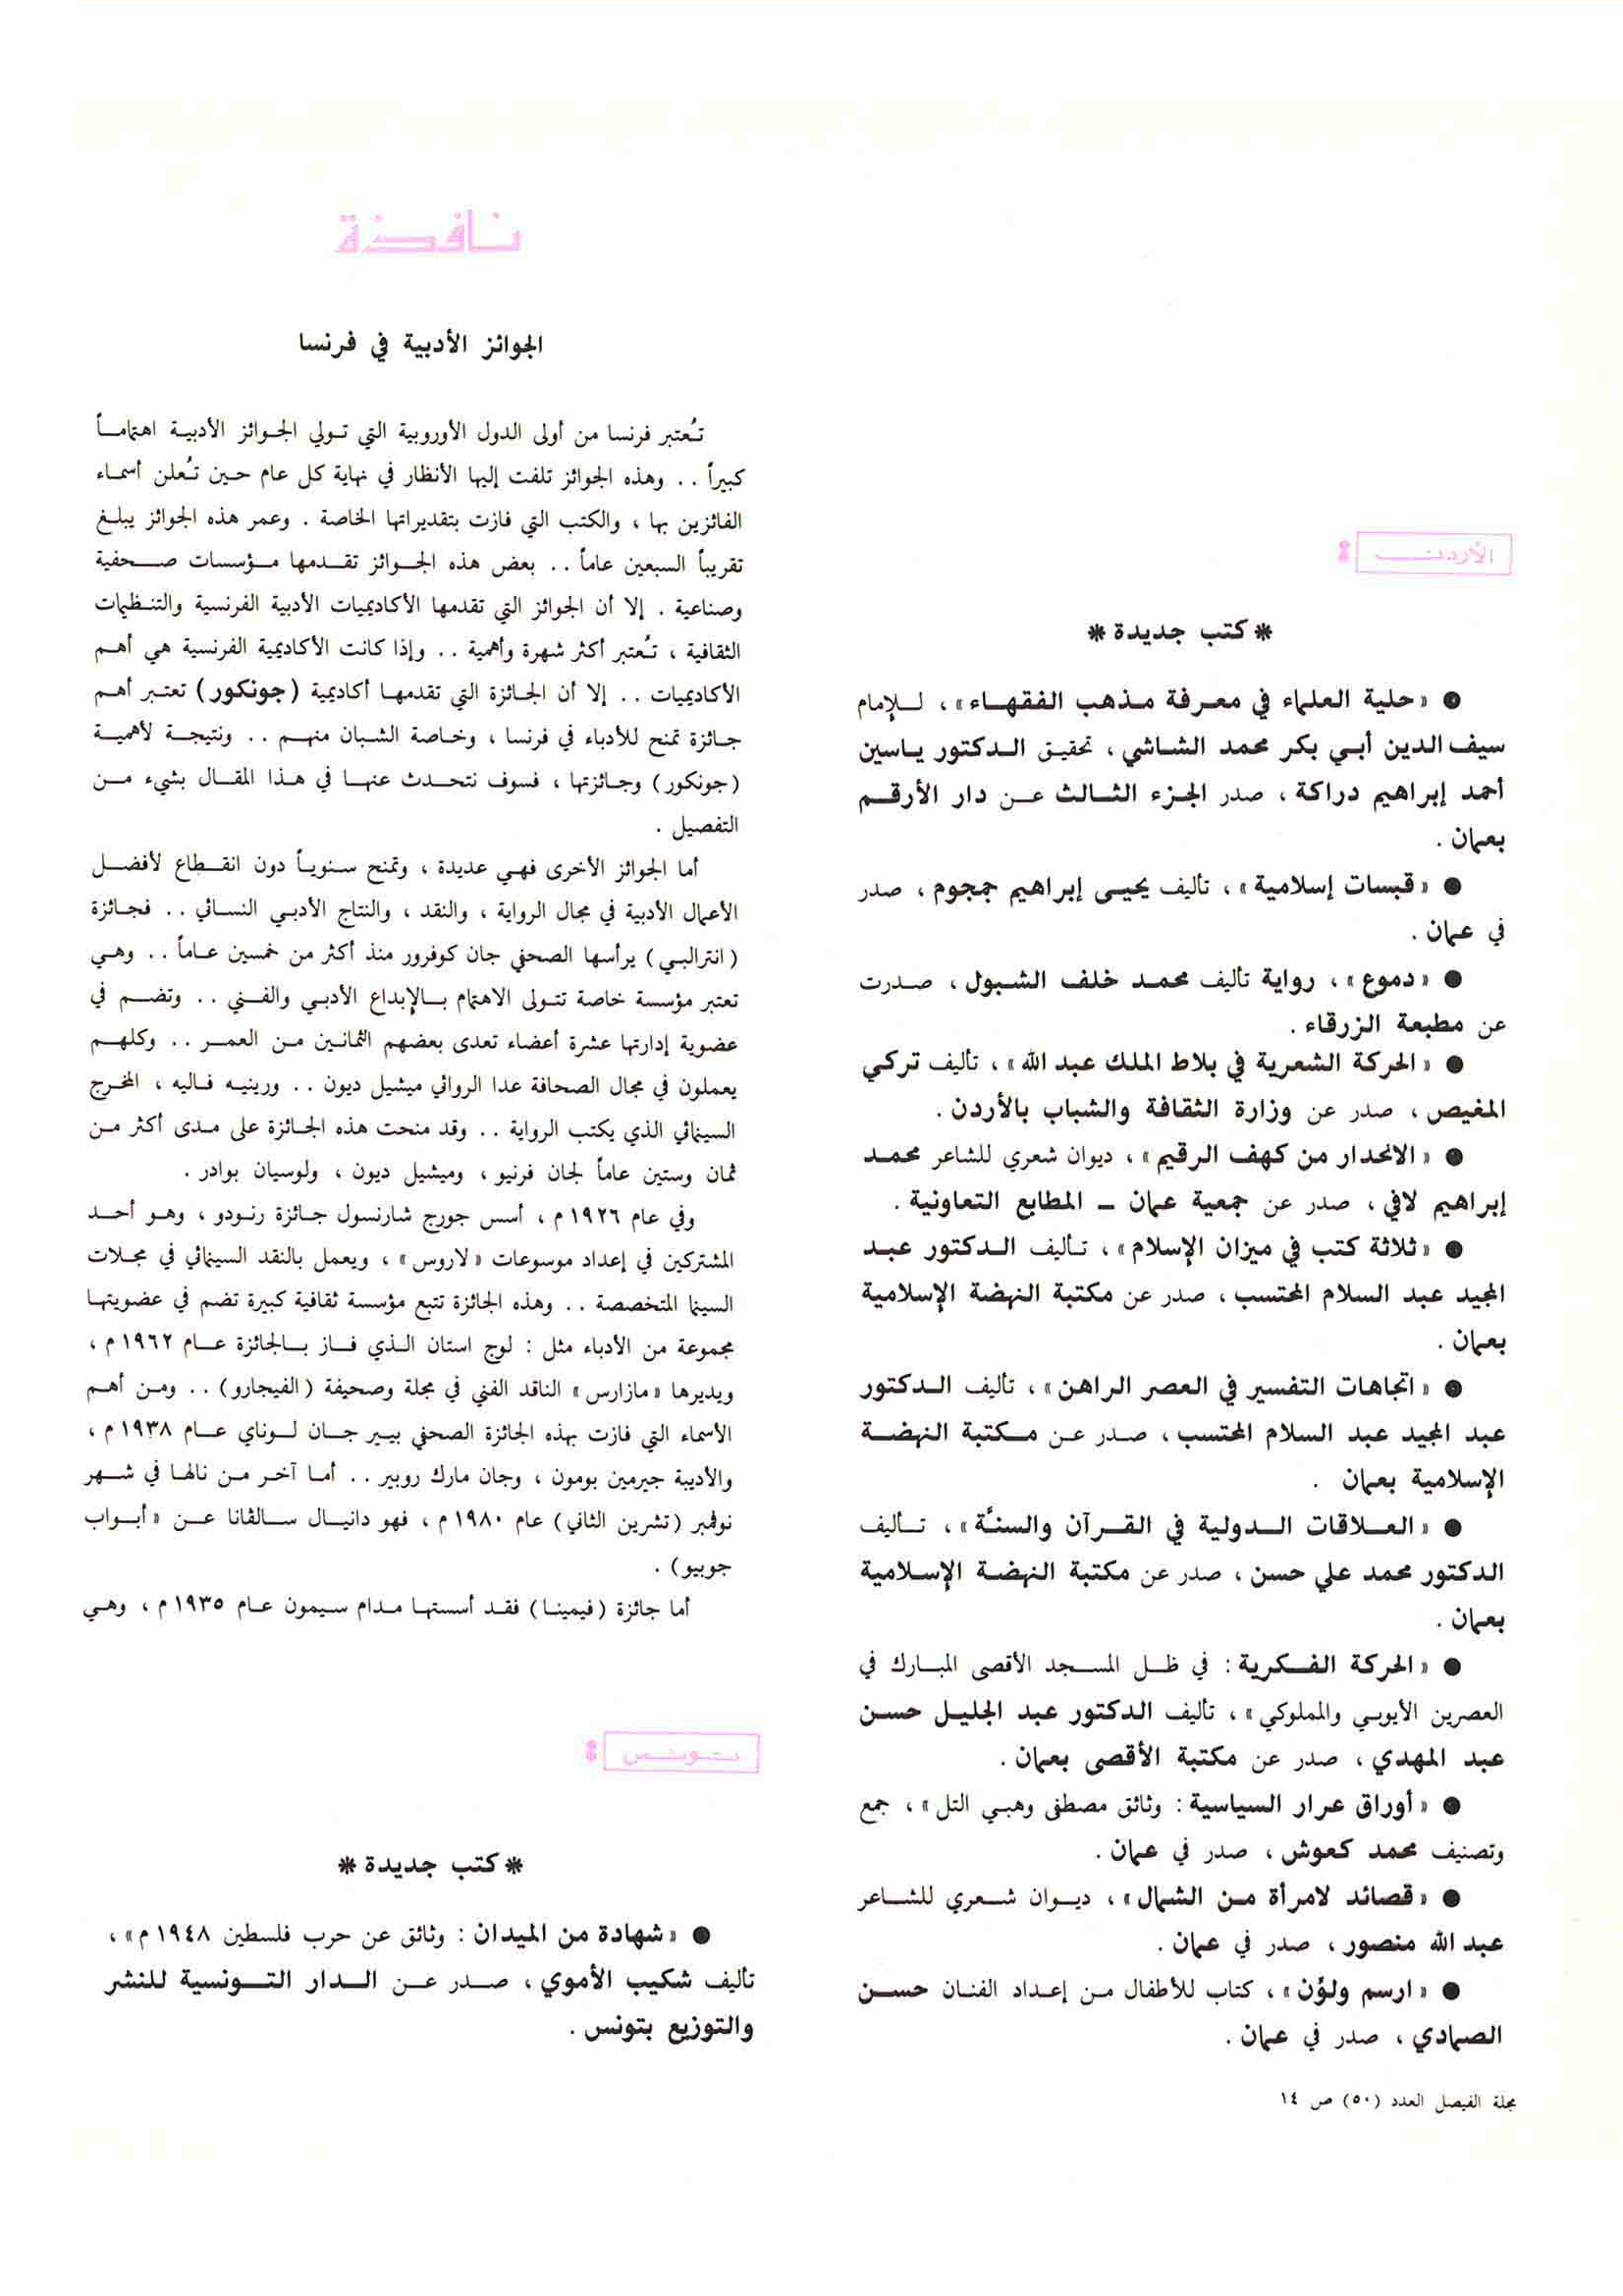 الأردن :
* كتب جديدة *
● « حلية العلماء في معرفة مذهب الفقهاء » ، للإمام
سيف الدين أبي بكر محمد الشاشي ، تحقيق الدكتور ياسين
أحمد إبراهيم دراكة ، صدر الجزء الثالث عن دار الأرقم
بعمان .
● « قبسات إسلامية » ، تأليف يحيى إبراهيم جمجوم ، صدر
في عمان .
● « دموع » ، رواية تأليف محمد خلف الشبول ، صدرت
عن مطبعة الزرقاء .
● « الحركة الشعرية في بلاط الملك عبد الله » ، تأليف تركي
المغيص ، صدر عن وزارة الثقافة والشباب بالأردن .
● « الانحدار من كهف الرقيم » ، ديوان شعري للشاعر محمد
إبراهيم لافي ، صدر عن جمعية عمان – المطابع التعاونية .
● « ثلاثة كتب في ميزان الإسلام » ، تأليف الدكتور عبد
المجيد عبد السلام المحتسب ، صدر عن مكتبة النهضة الإسلامية
بعمان .
● « اتجاهات التفسير في العصر الراهن » ، تأليف الدكتور
عبد المجيد عبد السلام المحتسب ، صدر عن مكتبة النهضة
الإسلامية بعمان .
● « العلاقات الدولية في القرآن والسنَّة » ، تأليف
الدكتور محمد علي حسن ، صدر عن مكتبة النهضة الإسلامية
بعمان .
● « الحركة الفكرية : في ظل المسجد الأقصى المبارك في
العصرين الأيوبي والمملوكي » ، تأليف الدكتور عبد الجليل حسن
عبد المهدي ، صدر عن مكتبة الأقصى بعمان .
● « أوراق عرار السياسية : وثائق مصطفى وهبي التل » ، جمع
وتصنيف محمد كعوش ، صدر في عمان .
● « قصائد لامرأة من الشمال » ، ديوان شعري للشاعر
عبد الله منصور ، صدر في عمان .
● « ارسم ولوِّن » ، كتاب للأطفال من إعداد الفنان حسن
الصمادي ، صدر في عمان .
مجلة الفيصل العدد (٥٠) ص ١٤
نافذة
الجوائز الأدبية في فرنسا
تُعتبر فرنسا من أولى الدول الأوروبية التي تولي الجوائز الأدبية اهتماماً
كبيراً .. وهذه الجوائز تلفت إليها الأنظار في نهاية كل عام حين تُعلن أسماء
الفائزين بها ، والكتب التي فازت بتقديراتها الخاصة . وعمر هذه الجوائز يبلغ
تقريباً السبعين عاماً .. بعض هذه الجوائز تقدمها مؤسسات صحفية
وصناعية . إلا أن الجوائز التي تقدمها الأكاديميات الأدبية الفرنسية والتنظيمات
الثقافية ، تُعتبر أكثر شهرة وأهمية .. وإذا كانت الأكاديمية الفرنسية هي أهم
الأكاديميات .. إلا أن الجائزة التي تقدمها أكاديمية (جونكور) تعتبر أهم
جائزة تمنح للأدباء في فرنسا ، وخاصة الشبان منهم .. ونتيجة لأهمية
(جونكور) وجائزتها ، فسوف نتحدث عنها في هذا المقال بشيء من
التفصيل .
أما الجوائز الأخرى فهي عديدة ، وتمنح سنوياً دون انقطاع لأفضل
الأعمال الأدبية في مجال الرواية ، والنقد ، والنتاج الأدبي النسائي .. فجائزة
(انترالبي) يرأسها الصحفي جان كوفرور منذ أكثر من خمسين عاماً .. وهي
تعتبر مؤسسة خاصة تتولى الاهتمام بالإبداع الأدبي والفني .. وتضم في
عضوية إدارتها عشرة أعضاء تعدى بعضهم الثمانين من العمر .. وكلهم
يعملون في مجال الصحافة عدا الروائي ميشيل ديون .. ورينيه فاليه ، المخرج
السينمائي الذي يكتب الرواية .. وقد منحت هذه الجائزة على مدى أكثر من
ثمان وستين عاماً لجان فرنيو ، وميشيل ديون ، ولوسيان بوادر .
وفي عام ١٩٢٦ م ، أسس جورج شارنسول جائزة رنودو ، وهو أحد
المشتركين في إعداد موسوعات « لاروس » ، ويعمل بالنقد السينمائي في مجلات
السينما المتخصصة .. وهذه الجائزة تتبع مؤسسة ثقافية كبيرة تضم في عضويتها
مجموعة من الأدباء مثل : لوج استان الذي فاز بالجائزة عام ١٩٦٢ م ،
ويديرها « مازارس » الناقد الفني في مجلة وصحيفة (الفيجارو) .. ومن أهم
الأسماء التي فازت بهذه الجائزة الصحفي بيير جان لوناي عام ١٩٣٨ م ،
والأديبة جيرمين بومون ، وجان مارك روبير .. أما آخر من نالها في شهر
نوفمبر (تشرين الثاني) عام ١٩٨٠ م ، فهو دانيال سالڤانا عن « أبواب
جوبيو) .
أما جائزة (فيمينا) فقد أسستها مدام سيمون عام ١٩٣٥ م ، وهي
تونس :
* كتب جديدة *
● « شهادة من الميدان : وثائق عن حرب فلسطين ١٩٤٨ م » ،
تأليف شكيب الأموي ، صدر عن الدار التونسية للنشر
والتوزيع بتونس .